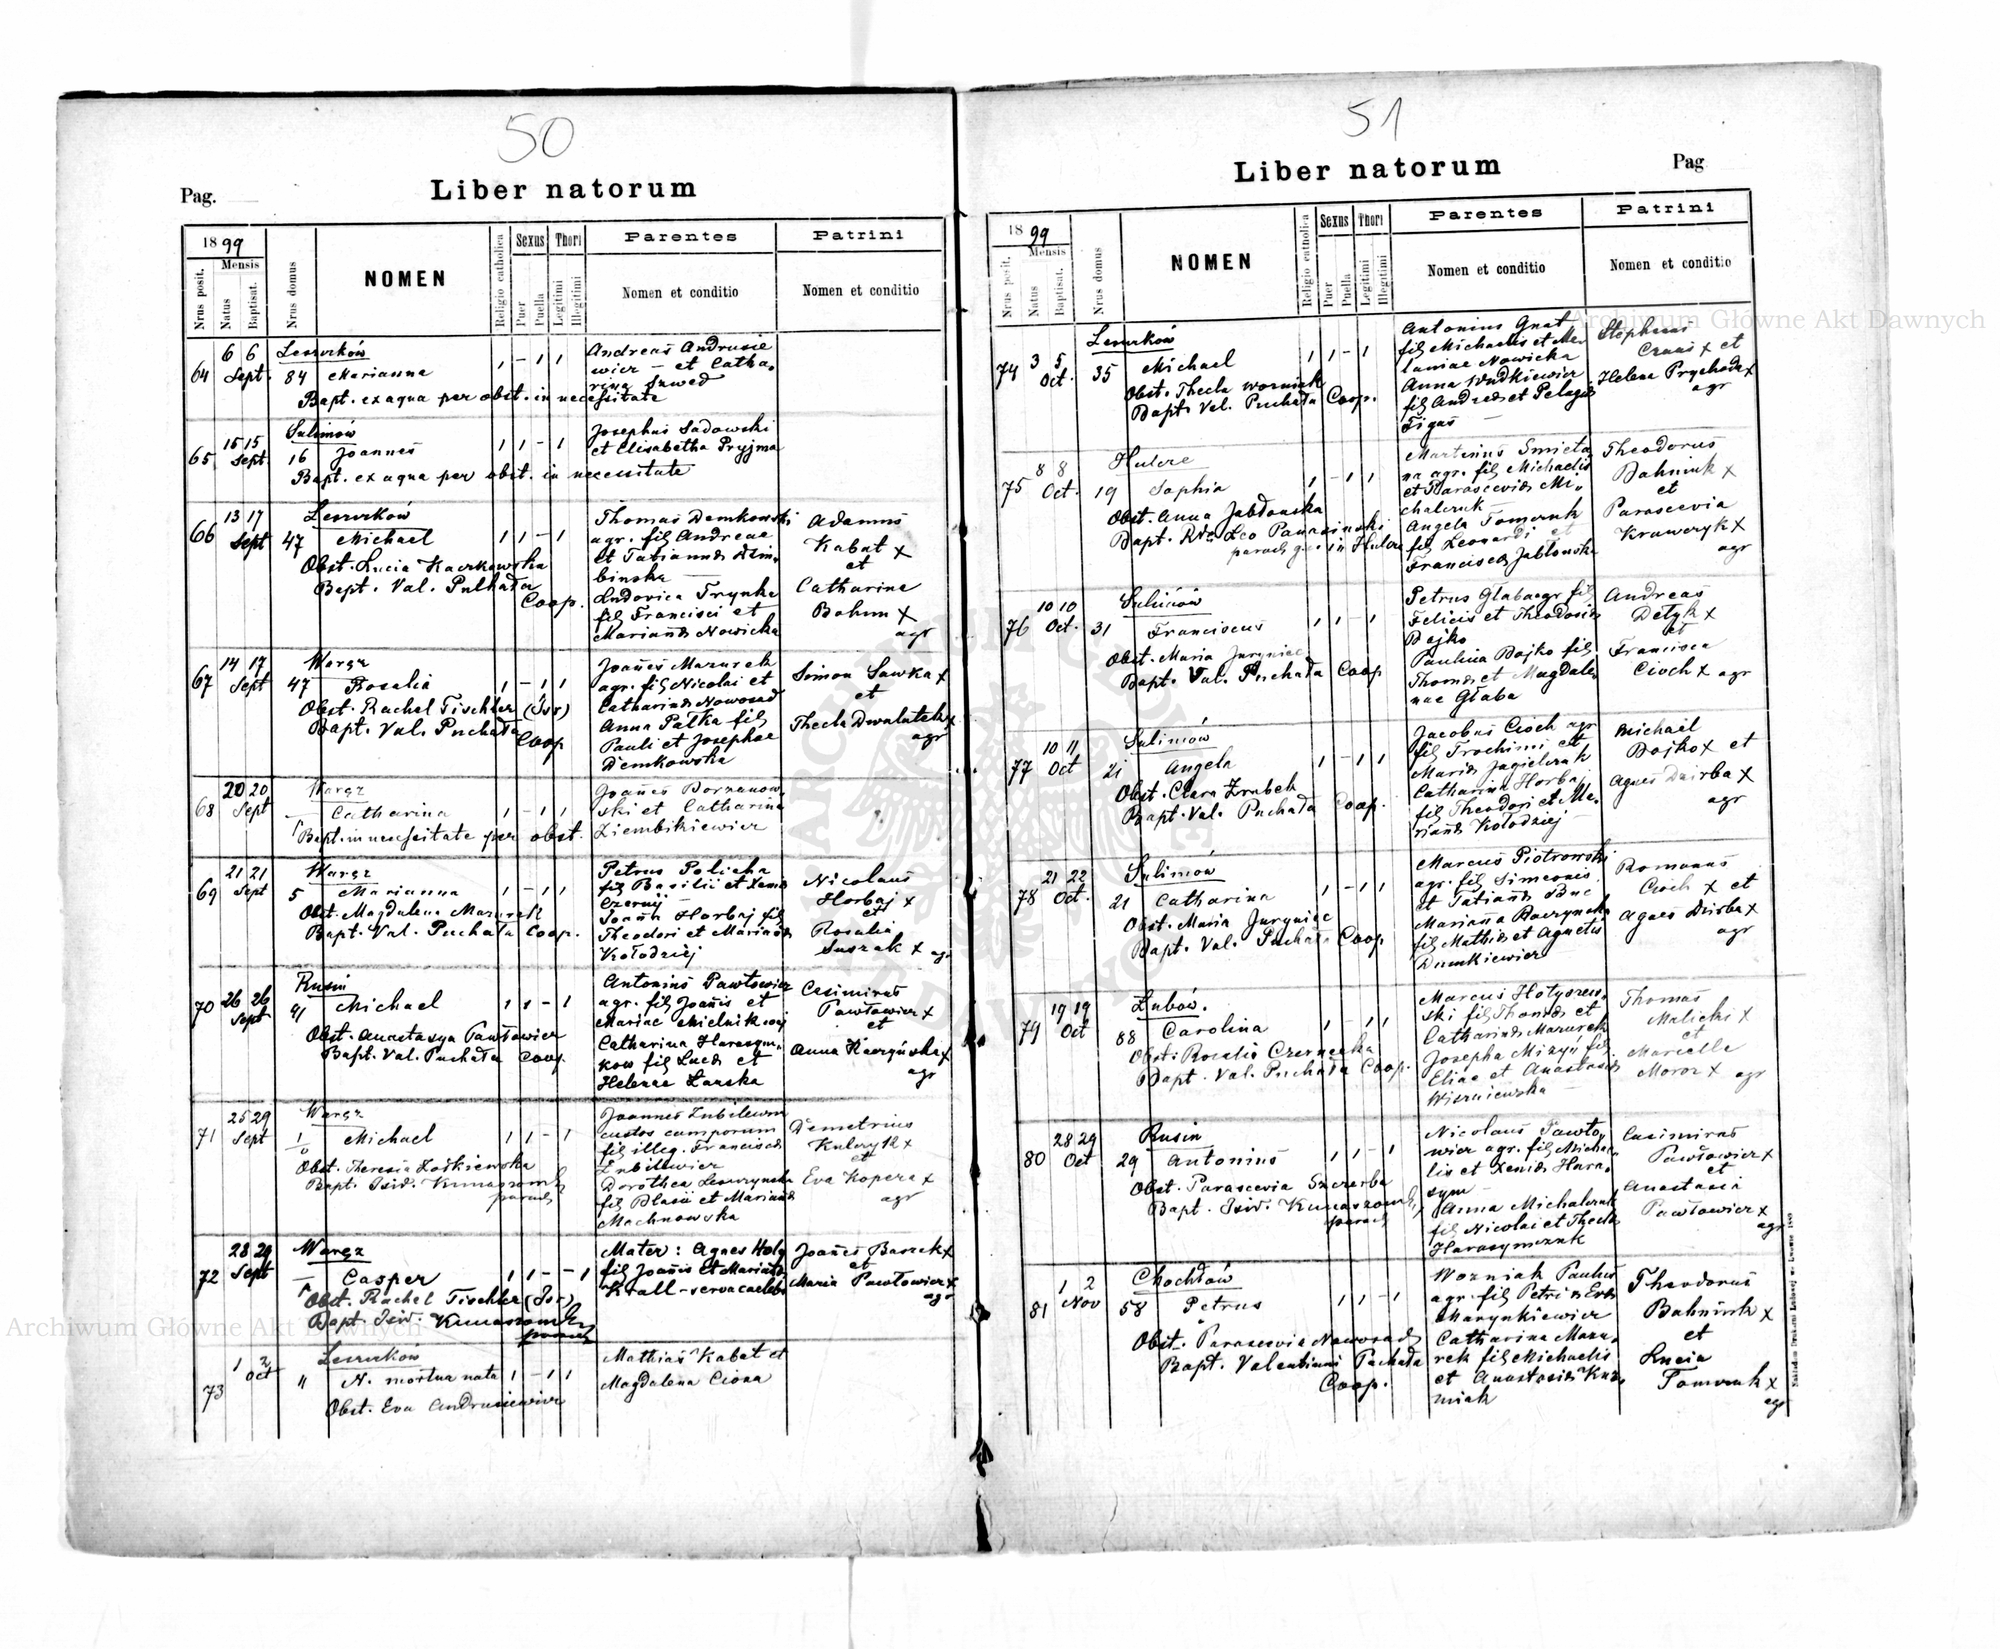 50
Pag.
Liber natorum
1899
Mensis
Nrus posit.
Natus
Baptisat.
Nrus domus
NOMEN
Religio catholica
Sexus
Puer
Puella
Thori
Legitimi
Illegitimi
Parentes
Nomen et conditio
Patrini
Nomen et conditio
64
6 6
Sept.
84
Marianna
Bapt. ex aqua per obst. in necessitate
Andreas Andrusie
wicz — et Catha,
rena Szwed
65
15 15
Sept.
Sulimów
16
Joannes
Bapt. ex aqua per obst. in necessitate
Josephus Sadowski
et Elisabetha Pryjma
66
13 17
Sept
47
Michael
Obst. Lucia Kaczkowska
Bapt. Val. Puchała
Coop.
Thomas Demkowski
agr. fil. Andreae
et Tatiannae Dem,
binska
Ludovica Frynka
fil. Francisci et
Mariannae Nowicka
Adamus
Kabat x
et
Catharina
Bohun x
agr
67
14 17
Sept
Waręż
47
Rosalia
Obst. Rachel Tischler (Isr)
Bapt. Val. Puchała
Coop
Joannes Mazurek
agr. fil. Nicolai et
Catharinae Nowosad
Anna Pałka fil
Pauli et Josephae
Demkowska
Simon Sawka x
et
Thecla
agr
68
20 20
Sept
Waręż
— Catharina
Bapt. in necessitate per obst.
Joannes Borzanow,
ski et Catharina
Ziembikiewicz
69
21 21
Sept
Waręż
5
Marianna
Obst. Magdalena Mazurek
Bapt. Val. Puchała Coop.
Petrus Policha
fil Basilii et Xeniae
Czernij
Joanna Horbaj fil
Theodori et Mariannae
Kołodziej
Nicolaus
Horbaj x
et
Rosalia
Suszak x agr
70
26 26
Sept
Rusin
41
Michael
Obst. Anastasya Pawłowicz
Bapt. Val. Puchała Coop.
Antonius Pawłowicz
agr. fil Joannis et
Mariae
Catharina Harasym,
kow fil Lucae et
Helenae Łanska
Casimirus
Pawłowicz x
et
Anna
agr
71
25 29
Sept
Waręż
1
Michael
Obst. Theresia Zołkiewska
Bapt. Isid. Kunaszowski
paroch
Joannes Zubilewicz
custos camporum
fil illeg. Franciscae
Zubilewicz
Dorothea Leszczynska
fil Blasii et Mariannae
Machnowska
Demetrius
Kulczyk x
et
Eva Kopera x
agr
72
28 29
Sept
Waręż
— Casper
Obst. Rachel Tischler (Isr)
Bapt. Isid. Kunaszowski
paroch
Mater: Agnes
fil Joannis et Mariannae
Krall - serva caelebs
Joannes Baszek x
et
Maria Pawłowicz x
agr
73
1 2
Oct
"
N. mortua nata
Obst. Eva Andrusiewicz
Mathias Kabat et
Magdalena Ciona
51
Liber natorum
Pag
1899
Mensis
Nrus posit.
Natus
Baptisat.
Nrus domus
NOMEN
Religio catholica
Sexus
Puer
Puella
Thori
Legitimi
Illegitimi
Parentes
Nomen et conditio
Patrini
Nomen et conditio
74
3 5
Oct.
35
Michael
Obst. Thecla Wozniak
Bapt. Val. Puchała Coop.
Antonius Gnat
fil Michaelis et Me,
laniae Nowicka
Anna Wudkiewicz
fil Andreae et Pelagiae
Figas —
Stephanus
x et
Helena Prychoda x
agr
75
8 8
Oct.
Hulcze
19
Sophia
Obst. Anna Jabłonska
Bapt. Rds Leo
paroch g.r. in Hulcze
Martinus Smieta
na agr. fil Michaelis
et Parasceviae Mi,
chalczuk
Angela Tomczuk
fil Leonardi et
Franciscae Jabłonska
Theodorus
Bahniuk x
et
Parascevia
Krawczyk x
agr
76
10 10
Oct.
Sulimów
31
Franciscus
Obst. Maria Juryniec
Bapt. Val. Puchała Coop
Petrus Głaba agr fil
Felicis et Theodosiae
Bojko
Paulina Bojko fil
Thomae et Magdale,
nae Głaba
Andreas
Detyk x
et
Francisca
Cioch x agr
77
10 11
Oct
Sulimów
21
Angela
Obst. Clara Zrubek
Bapt. Val. Puchała Coop.
Jacobus Cioch agr
fil Trochimi et
Mariae Jagielczuk
Catharina Horbaj
fil Theodori et Ma,
riannae Kołodziej
Michael
Bojko x et
Agnes Dzirba x
agr
78
21 22
Oct.
Sulimów
21
Catharina
Obst. Maria Juryniec
Bapt. Val. Puchała Coop.
Marcus Piotrowski
agr. fil Simeonis
et Tatiannae Buc
Marianna Raczynska
fil Mathiae et Agnetis
Dumkiewicz
Romanus
Cioch x et
Agnes Dzirba x
agr
79
19 19
Oct
Łubów.
88
Carolina
Obst. Rosalia Czernecka
Bapt. Val. Puchała Coop.
Marcus Hołyszew,
ski fil Thomae et
Catharinae Mazurek
Josepha Mizyń fil
Eliae et Anastasiae
Wiszniewska —
Thomas
Malicki x
et
Marcella
Moroz x agr
80
28 29
Oct
Rusin
29
Antonius
Obst. Parascevia Szczerba
Bapt. Isid. Kunaszowski
paroch
Nicolaus Pawło,
wicz agr. fil Micha,
lis et Xeniae Hara,
sym —
Anna Michalczuk
fil Nicolai et Theclae
Harasymczuk
Casimirus
Pawłowicz x
et
Anastasia
Pawłowicz x
agr
81
1 2
Nov
Chochłów
58
Petrus
Obst. Parascevia Nowosad
Bapt. Valentinus Puchała
Coop.
Wozniak Paulus
agr. fil Petri et Evae
Martynkiewicz
Catharina Mazu,
rek fil Michaelis
et Anastasiae Kuz,
niak
Theodorus
Bahniuk x
et
Lucia
Tomczuk x
agr
Archiwum Główne Akt Dawnych
Archiwum Główne Akt Dawnych